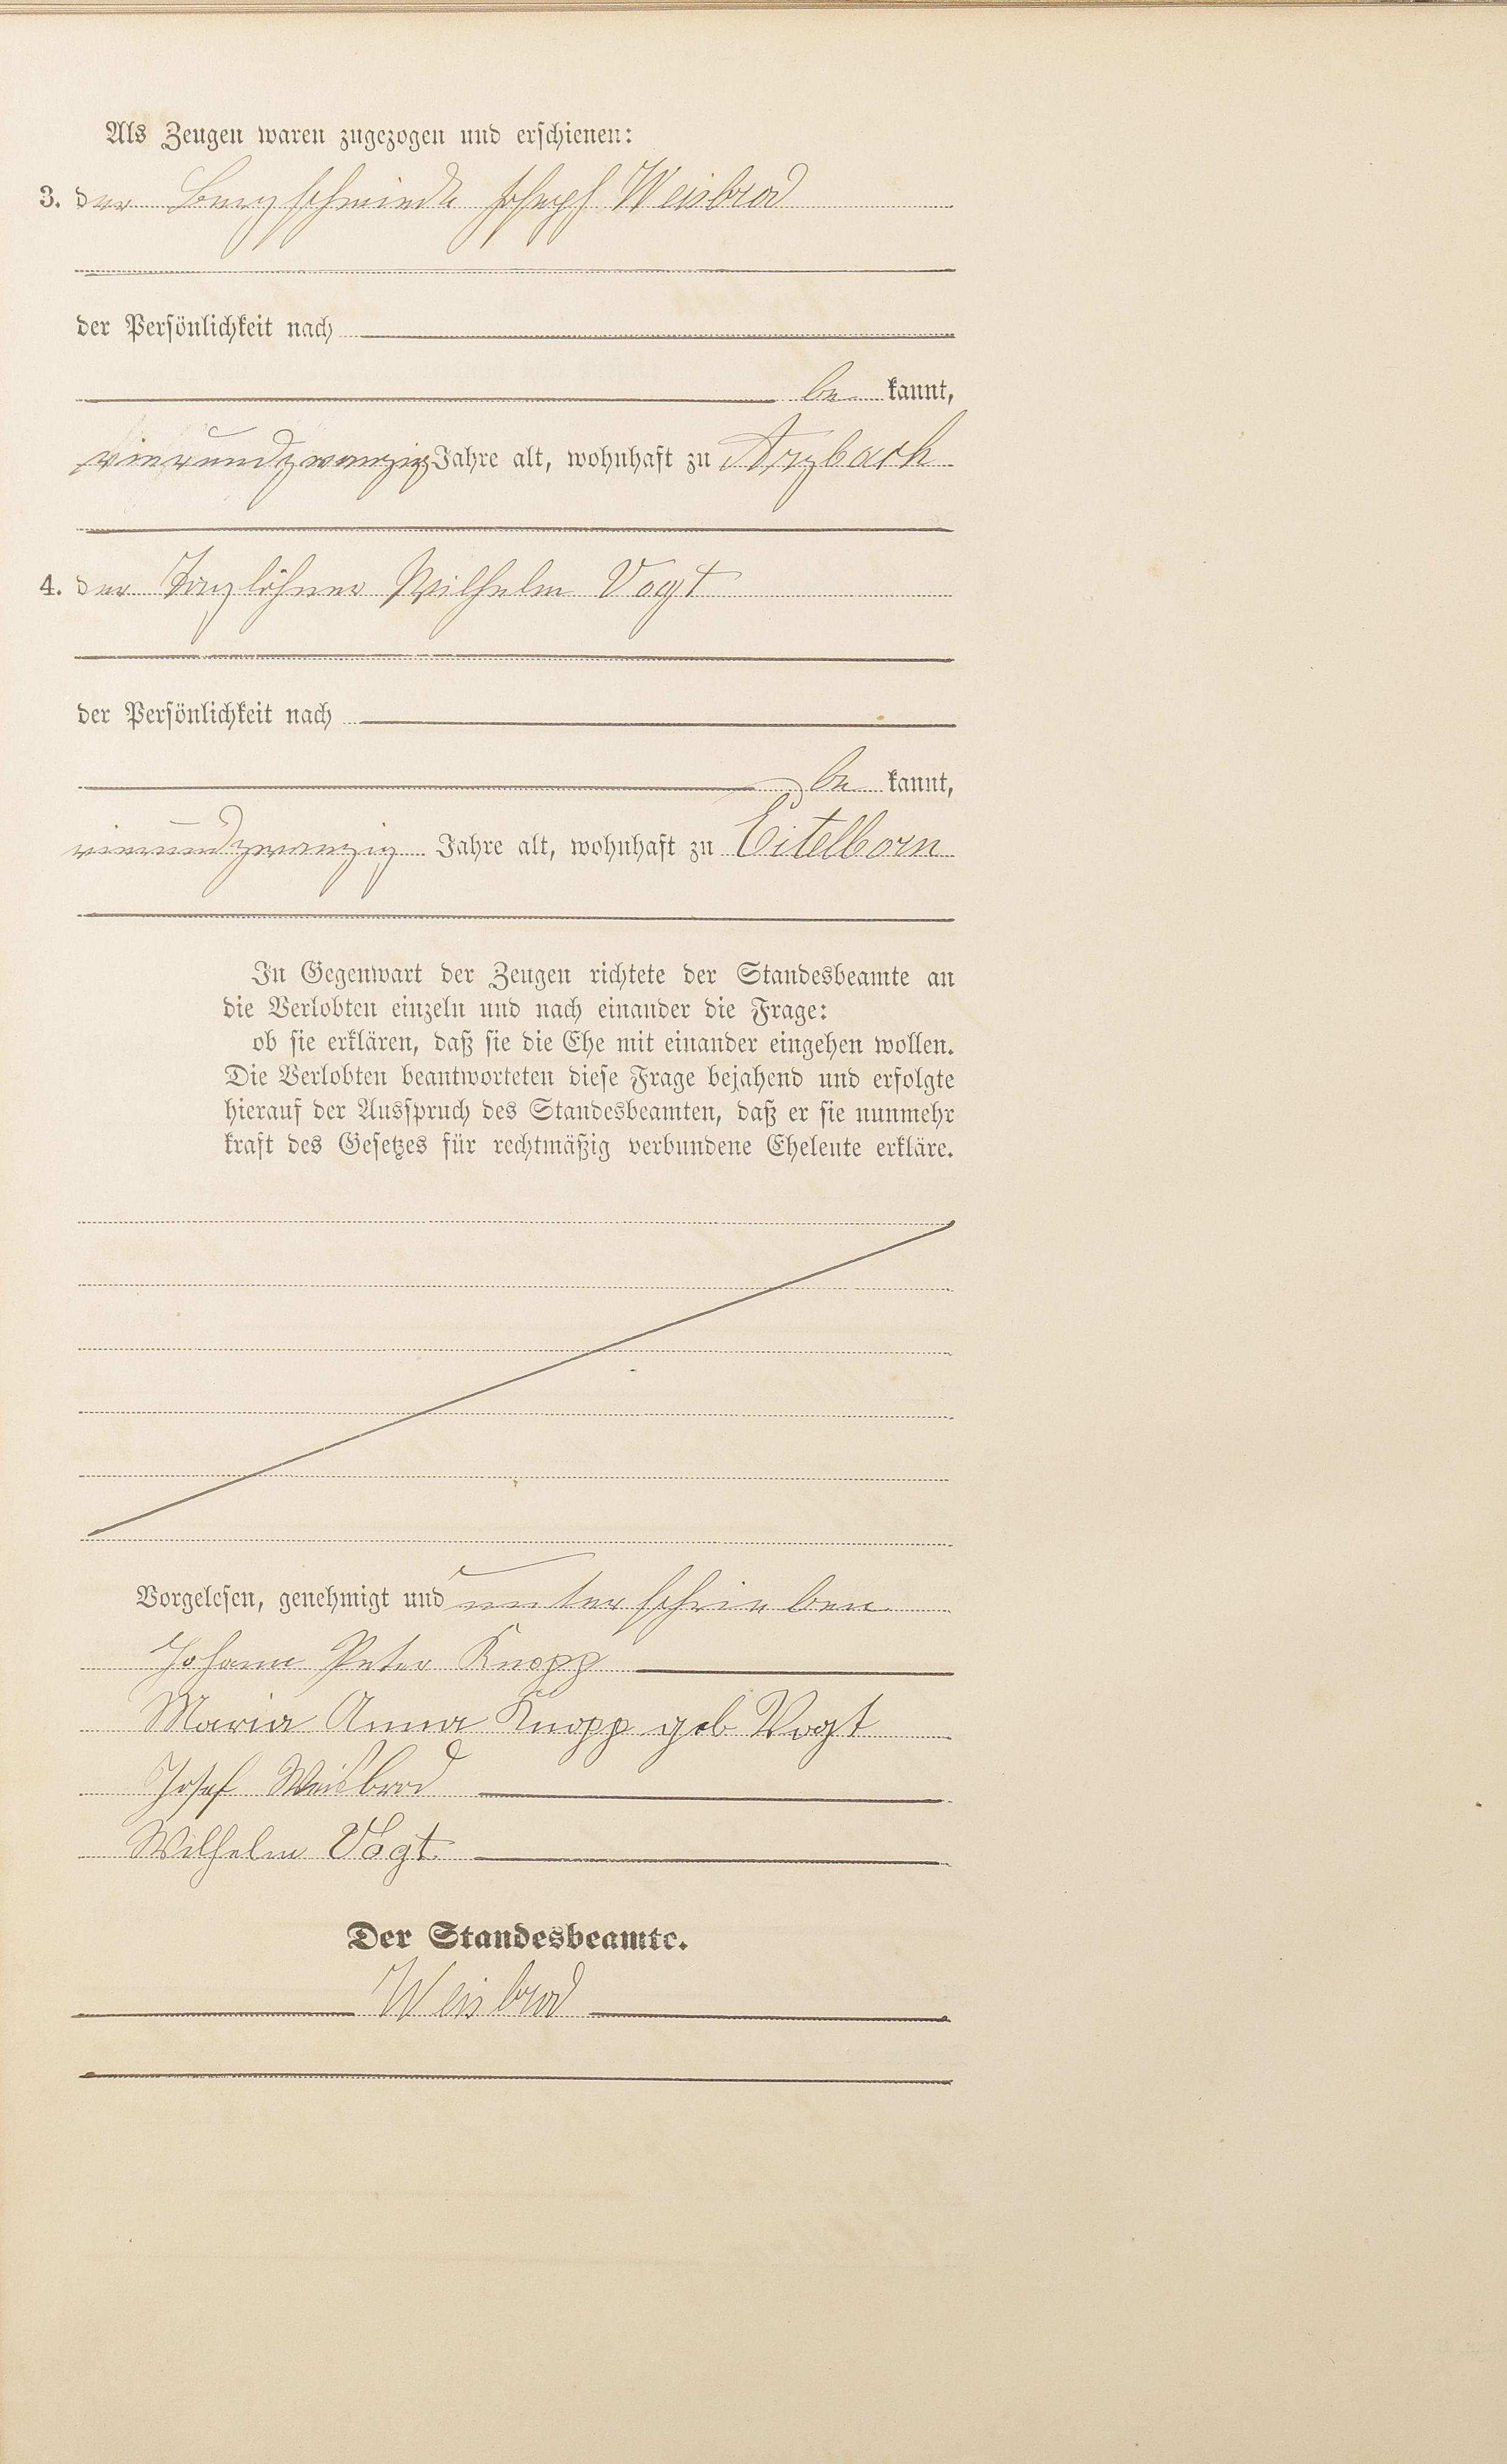 Als Zeugen waren zugezogen und erschienen:
3. der Bergschmiede Joseph Weisbrod
der Persönlichkeit nach
be kannt,
vierundzwanzig Jahre alt, wohnhaft zu Arzbach
4. der Taglöhner Wilhelm Vogt
der Persönlichkeit nach
be kannt,
vierundzwanzig Jahre alt, wohnhaft zu Eitelborn
In Gegenwart der Zeugen richtete der Standesbeamte an
die Verlobten einzeln und nach einander die Frage:
ob sie erklären, daß sie die Ehe mit einander eingehen wollen.
Die Verlobten beantworteten diese Frage bejahend und erfolgte
hierauf der Ausspruch des Standesbeamten, daß er sie nunmehr
kraft des Gesetzes für rechtmäßig verbundene Eheleute erkläre.
Vorgelesen, genehmigt und unterschrieben
Johann Peter Knopp
Maria Anna Knopp geb Vogt
Josef Weisbrod
Wilhelm Vogt
Der Standesbeamte.
Weisbrod